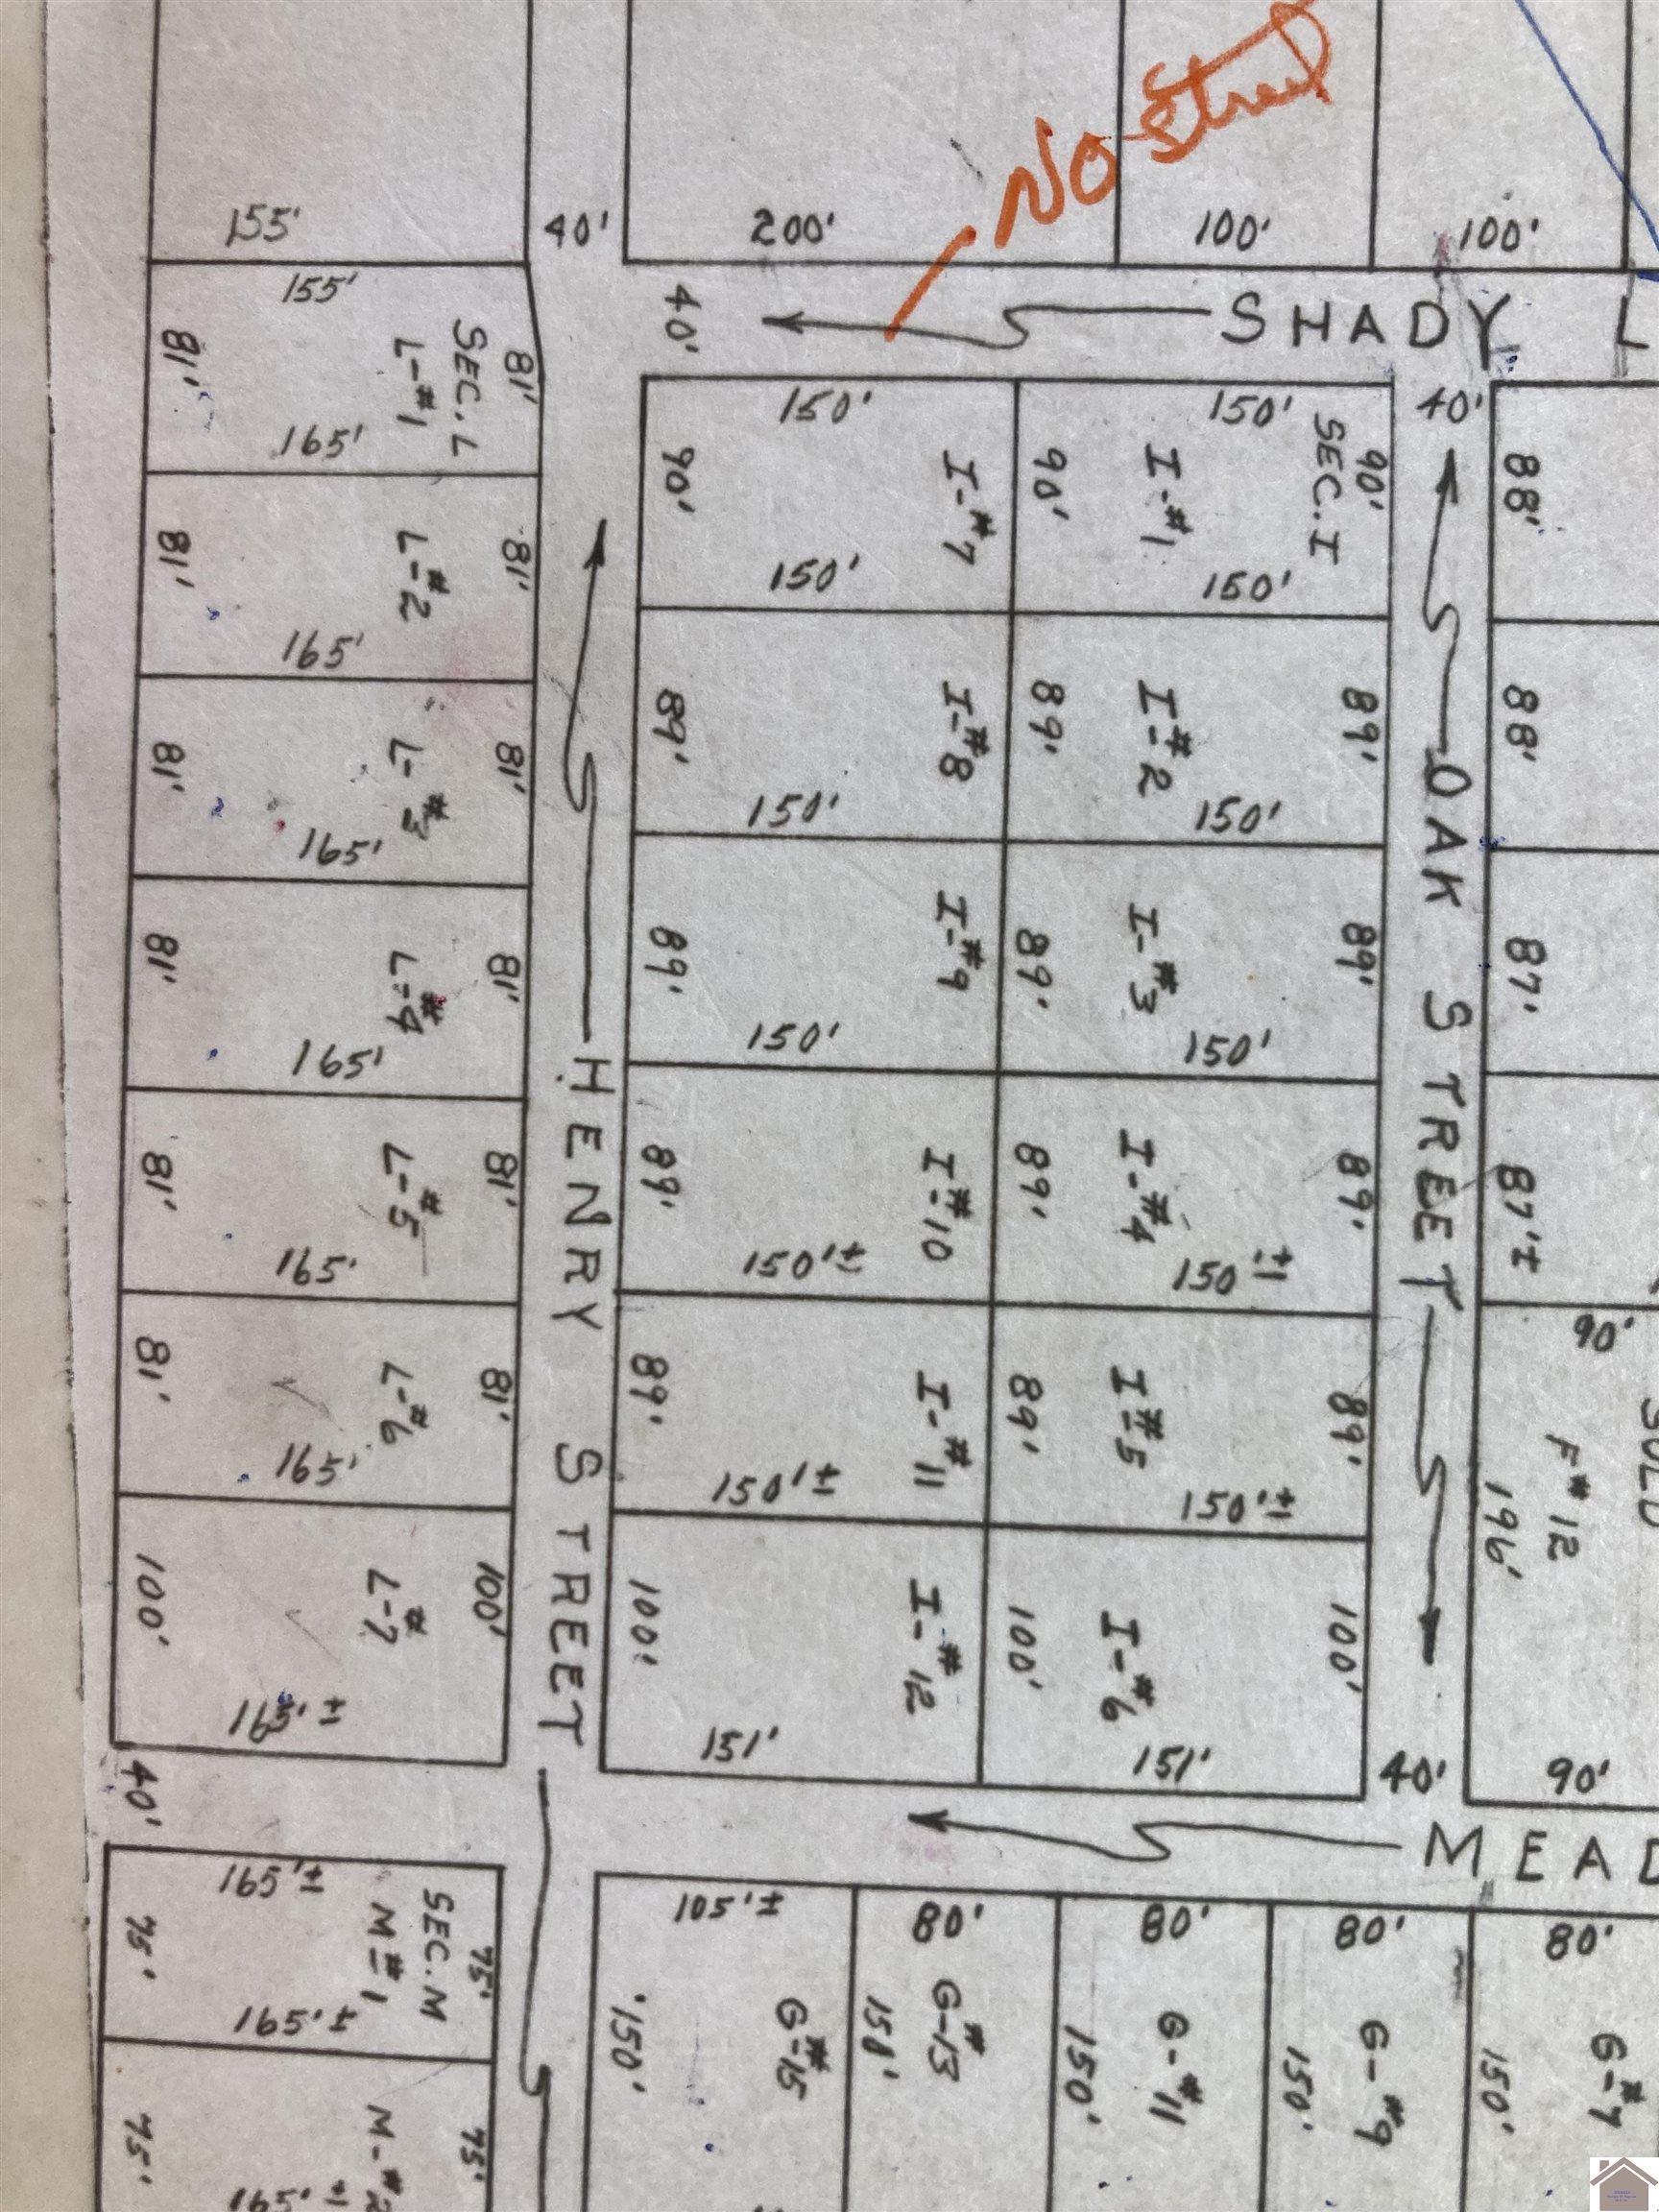 NO Street
155'
40'
200'
100'
100'
SHADY L
40'
155'
SEC. L
L-#1
81'
81'
165'
L-#2
81'
81'
165'
L-#3
81'
81'
165'
L-#4
81'
81'
165'
L-#5
81'
81'
165'
L-#6
81'
81'
165'
L-#7
100'
100'
165'±
40'
HENRY STREET
150'
I-#7
90'
150'
I-#8
89'
150'
I-#9
89'
150'
I-#10
89'
150'±
I-#11
89'
150'±
I-#12
100'
151'
150'
SEC. I
I-#1
90'
90'
150'
I-#2
89'
89'
150'
I-#3
89'
89'
150'
I-#4
89'
89'
150'±
I-#5
89'
89'
150'±
I-#6
100'
100'
151'
40'
OAK STREET
40'
88'
88'
87'
87'±
90'
SOLD
F#12
196'
90'
MEAD
165'±
SEC. M
M-#1
75'
75'
165'±
M-#2
75'
75'
165'±
105'±
G-#15
150'
80'
G-#13
150'
80'
G-#11
150'
80'
G-#9
150'
80'
G-#7
150'